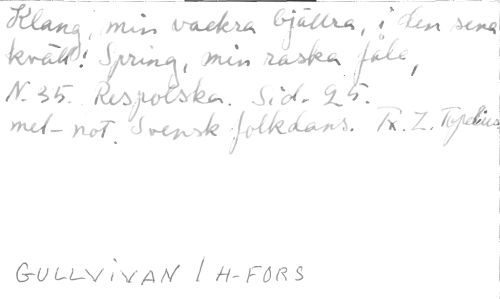 Klang, min vackra bjällra, i den sena
kväll! Spring, min raska fåle,
N. 35. Respolska. Sid. 25.
mel-not. Svensk folkdans. Tx. Z. Topelius
GULLVIVAN / H-FORS